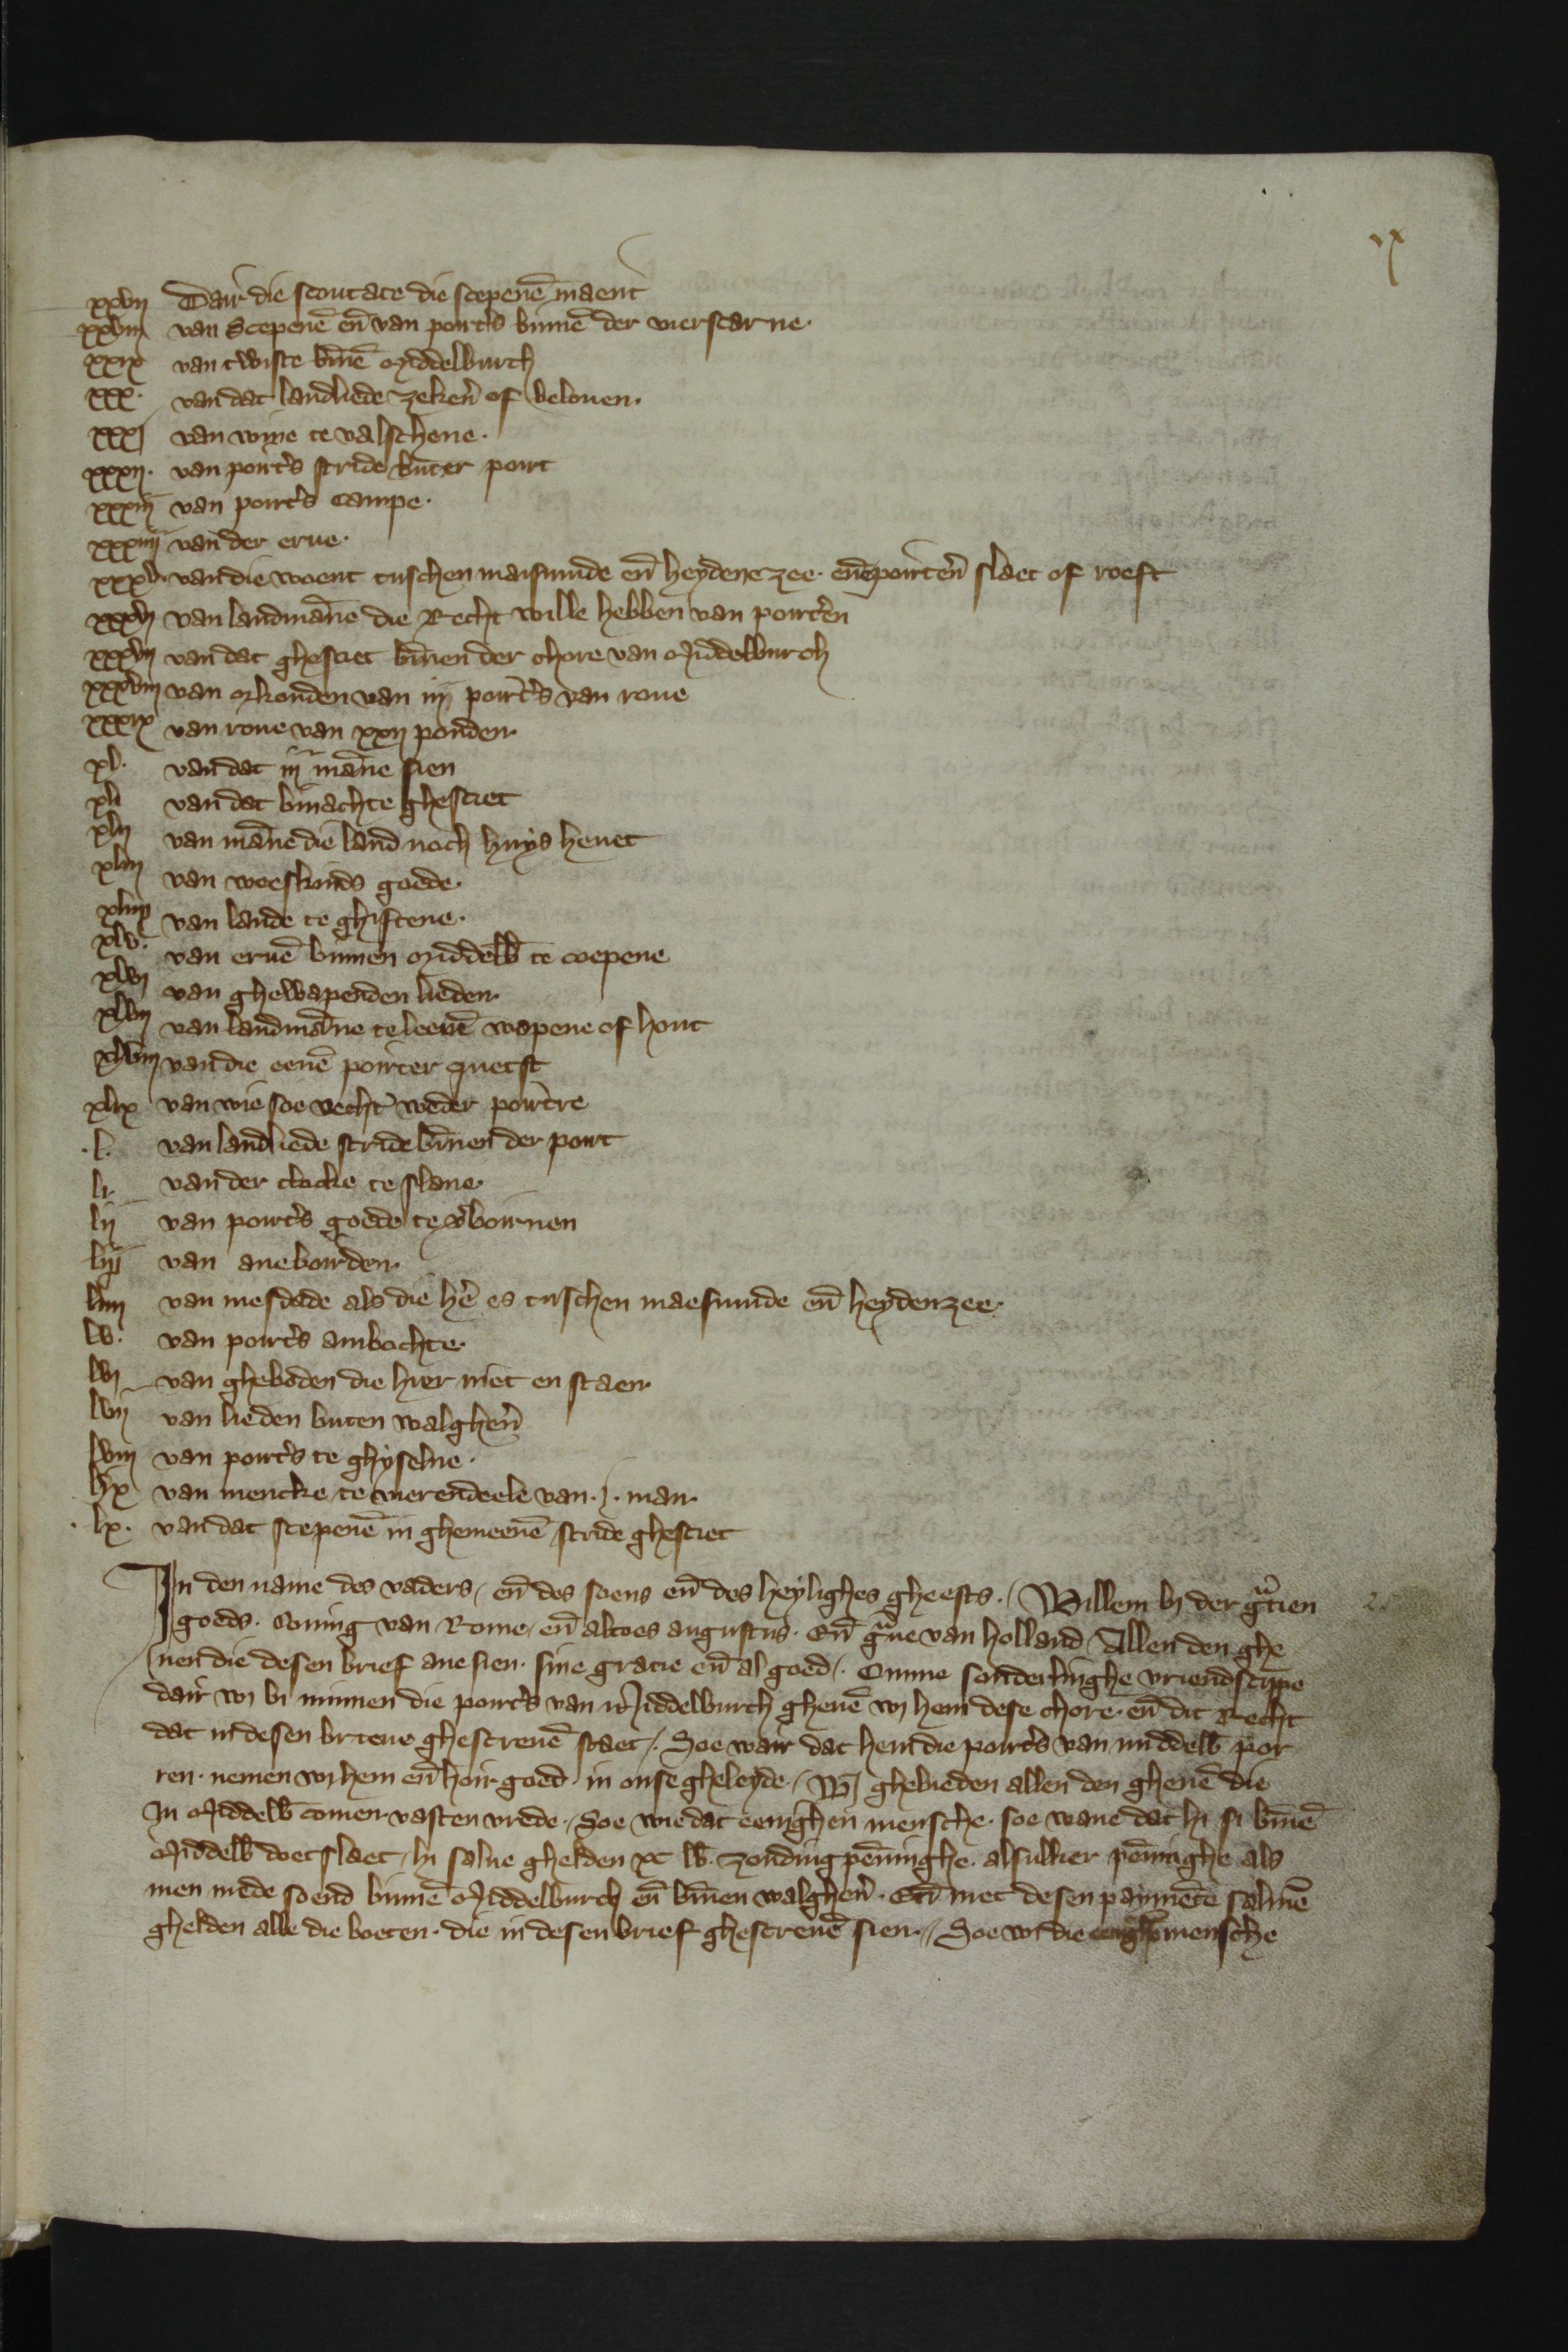 ix
xxvij Dair die scoutate die scepenē maent
xxviij van Scepenē en̄ van poirt's binnē der vierscarne.
xxix van twiste bīnē Middelburch
xxx. van dat landliede zeken̄ of beloven.
xxxj van wine te valschene.
xxxij. van poirt's stride buter poirt
xxxiij van poirt's campe.
xxxiiij van der erue.
xxxv. van die woent tuschen maismude en̄ heydenezee. en̄ poirten̄ slaet of roeft
xxxvj van landmāne die Recht wille hebben van poirt'en
xxxvij van dat ghesciet bīnen der chore van Middelburch
xxxviij van orkonden van iiij poirt's van roue
xxxix van roue van xxij ponden.
xl. van dat iij māne sien
xli van dat bīnachte ghesciet
xlij van māne die land noch huys heuet
xliij van weeskinds goede.
xliiij van lande te ghiftene.
xlv. van eruē binnen Middelb̄ te coepene
xlvj van ghewapenden lieden.
xlvij van landmāne te leenē wapene of hout
xlviij van die eenē poirter quetst
xlix van wie soe vecht weder poirtre
.l. van landliede stride bīnen der poirt
li. van der clocke te slane.
lij van poirt's goede te v'boirnen
liij van aneboirden.
liiij van mesdade als die hē es tuschen maesmude en̄ heydenzee.
lv. van poirt's ambochte.
lvj van gheboden die hier niet en staen.
lvij van lieden buten walghen̄
lviij van poirt's te ghyselne.
lix van mencke te vierendeele van .j. man.
.lx. van dat scepenē in ghemeenē stride ghesciet
In den name des vaders / en̄ des soens en̄ des heylighes gheests. / Willem bj der grātien
goeds. Coning van Rome / en̄ altoes augustus. En̄ grāue van Holland / Allen den ghe
nen die desen brief ane sien. sine gratie en̄ al goed /. Omme sonderlinghe vriendscipe
dair wj bi minnen die poirt's van Middelburch gheuē wj hem dese chore. en̄ dit Recht
dat in desen brieue ghescreuē staet /. Soe wair dat hem die poirt's van middelb̄ por
ren. nemen wj hem en̄ hoir goed. in onse gheleyde. / Wj ghebieden allen den ghenē die
In Middelb̄ comen. vasten vrede. / Soe wie dat eenighen mensche. soe wane dat hi si bīnē
Middelb̄ doet slaet / hi salne ghelden xc lb̄. zonding pēninghe. alsulker pēninghe als
men mede soend binnē Middelburch en̄ bīnen walghen̄. En̄ met desen paymēte salmē
ghelden alle die boeten. die in desen brief ghescreuē sien. // Soe wi die eenighē mensche